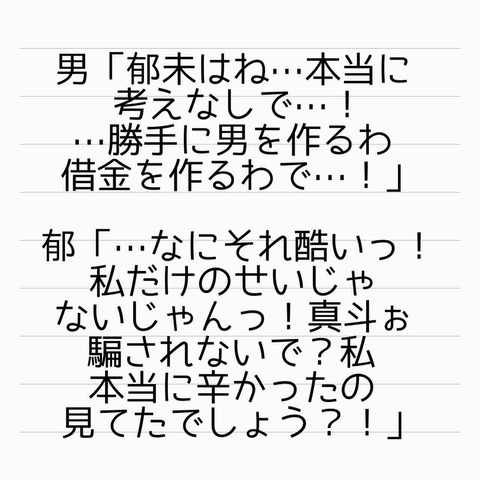 男「郁未はね…本当に
考えなしで…！
…勝手に男を作るわ
借金を作るわで…！」
郁「…なにそれ酷いっ！
私だけのせいじゃ
ないじゃんっ！真斗ぉ
騙されないで？私
本当に辛かったの
見てたでしょう？！」